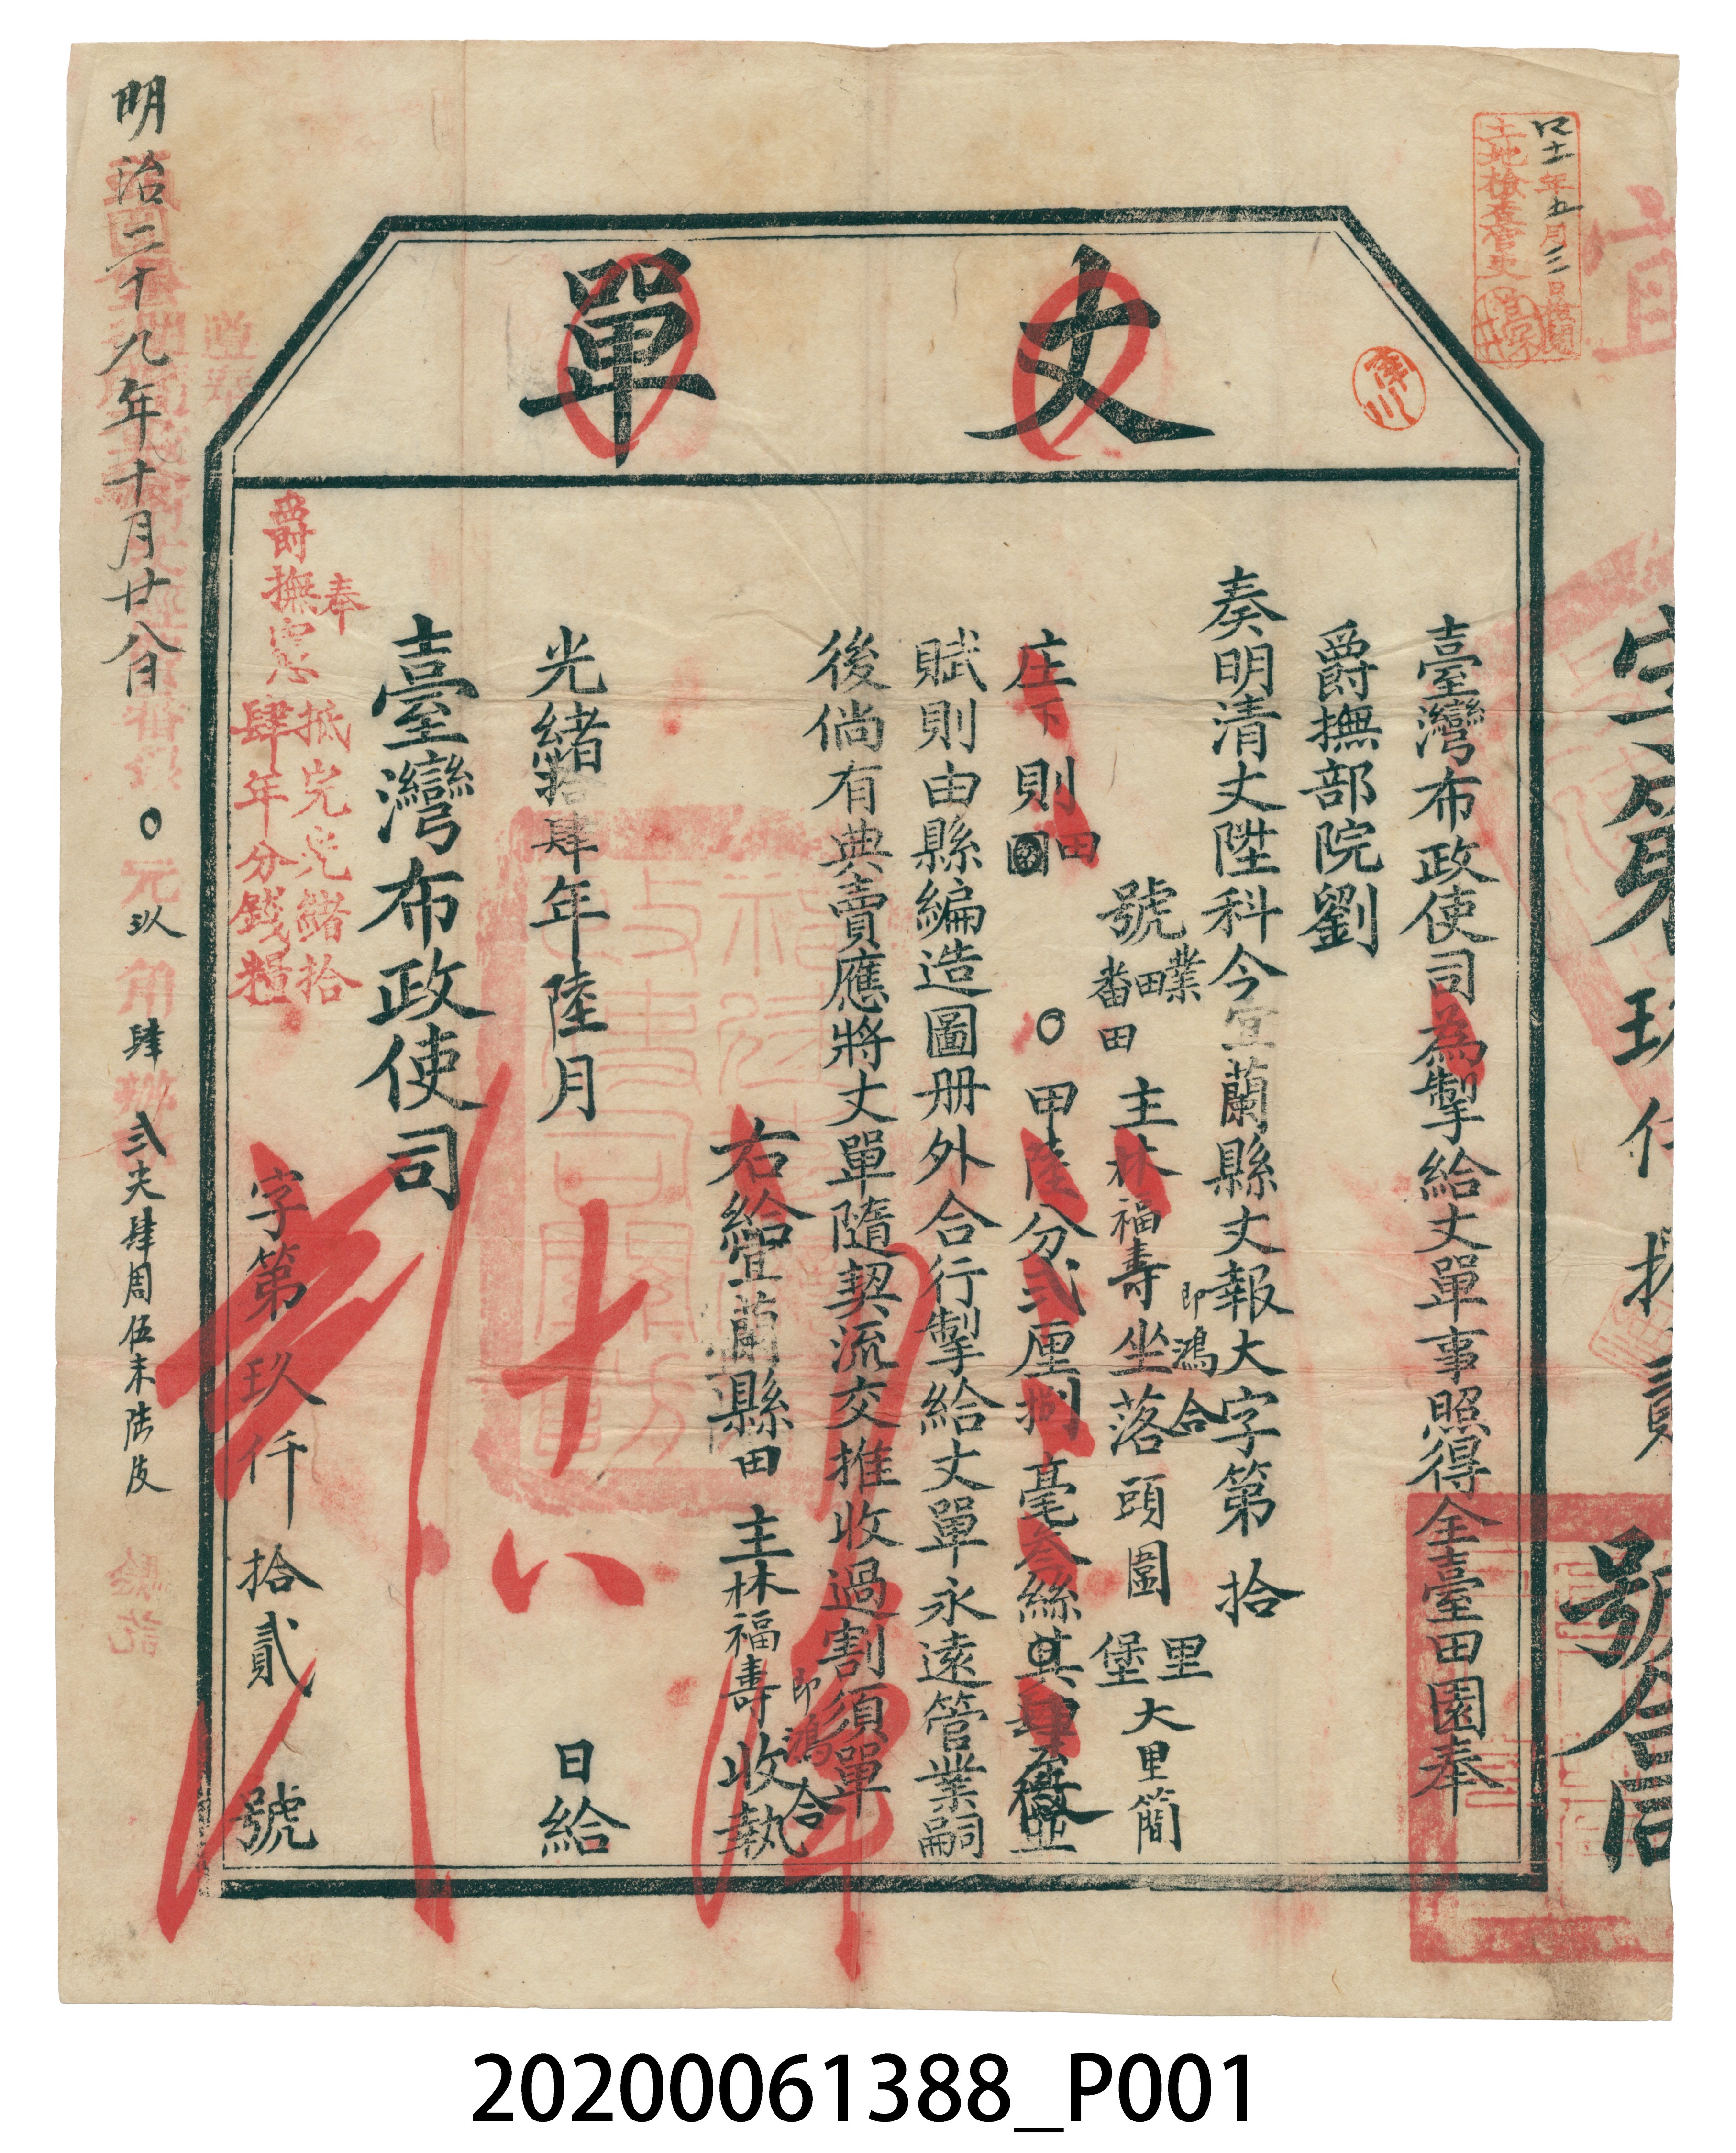 丈單
臺灣布政使司為掣給丈單事照得全臺田園奉
爵撫部院劉
奏明清丈陞科今宜蘭縣丈報大字第拾
號業田番田主林福壽即鴻合坐落頭圍里堡大里簡
庄下則田
〇甲陸分貳厘捌毫叁絲
賦則由縣編造圖册外合行掣給丈單永遠管業嗣
後倘有典賣應將丈單隨契流交推收過割須單
右給宜蘭縣田主林福壽即鴻合收執
光緒拾肆年陸月
日給
十八
臺灣布政使司
奉
爵撫憲
抵完光緒拾
肆年分錢糧
字第玖仟拾貳號
明治二十九年十月廿八日
〇元玖角肆瓣弍尖肆周伍末陆皮
驗訖
年五月三日檢閱
土地檢查官吏
津川
宜字第玖仟拾貳號
20200061388_P001